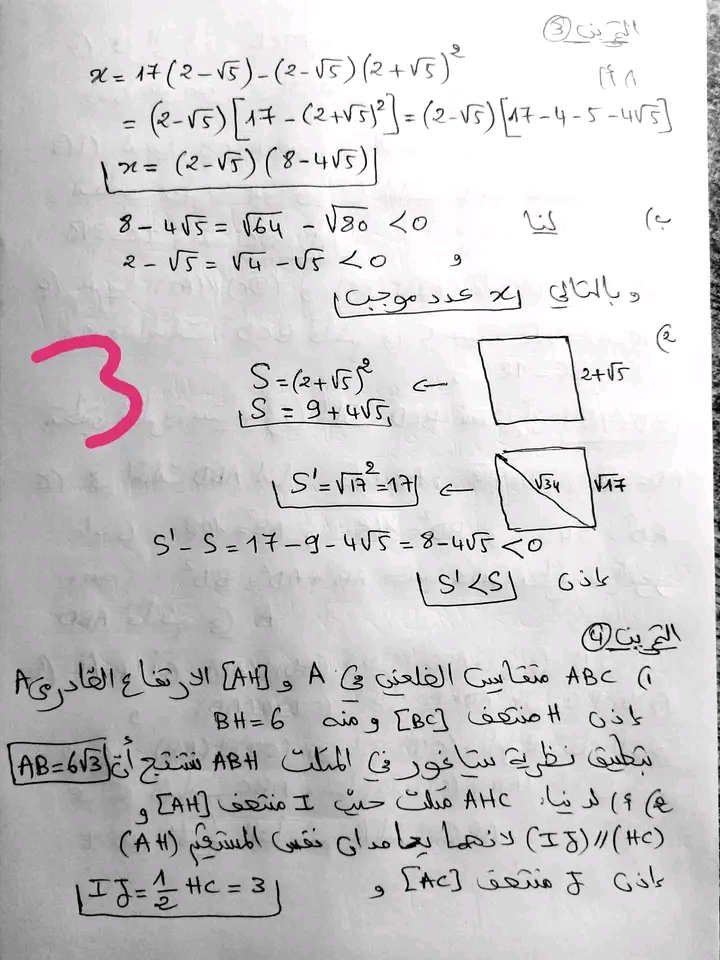 التمرين ③
1) أ) x = 17(2-√5) - (2-√5)(2+√5)²
= (2-√5)[17-(2+√5)²] = (2-√5)[17-4-5-4√5]
x = (2-√5)(8-4√5)
ب) لنا 8-4√5 = √64 - √80 < 0
و 2-√5 = √4 - √5 < 0
و بالتالي x عدد موجب
2)
2+√5 ← S = (2+√5)²
S = 9+4√5
√34 √17 ← S' = √17² = 17
3
S' - S = 17-9-4√5 = 8-4√5 < 0
إذن S' < S
التمرين ④
1) ABC متقايس الضلعين في A و [AH] الارتفاع الصادر من A
إذن H منتصف [BC] و منه BH = 6
بتطبيق نظرية بيتاغور في المثلث ABH نستنتج أن AB = 6√3
2) أ) لدينا AHC مثلث حيث I منتصف [AH] و
(IJ) // (HC) لانهما يعامدان نفس المستقيم (AH)
إذن J منتصف [AC] و IJ = 1/2 HC = 3